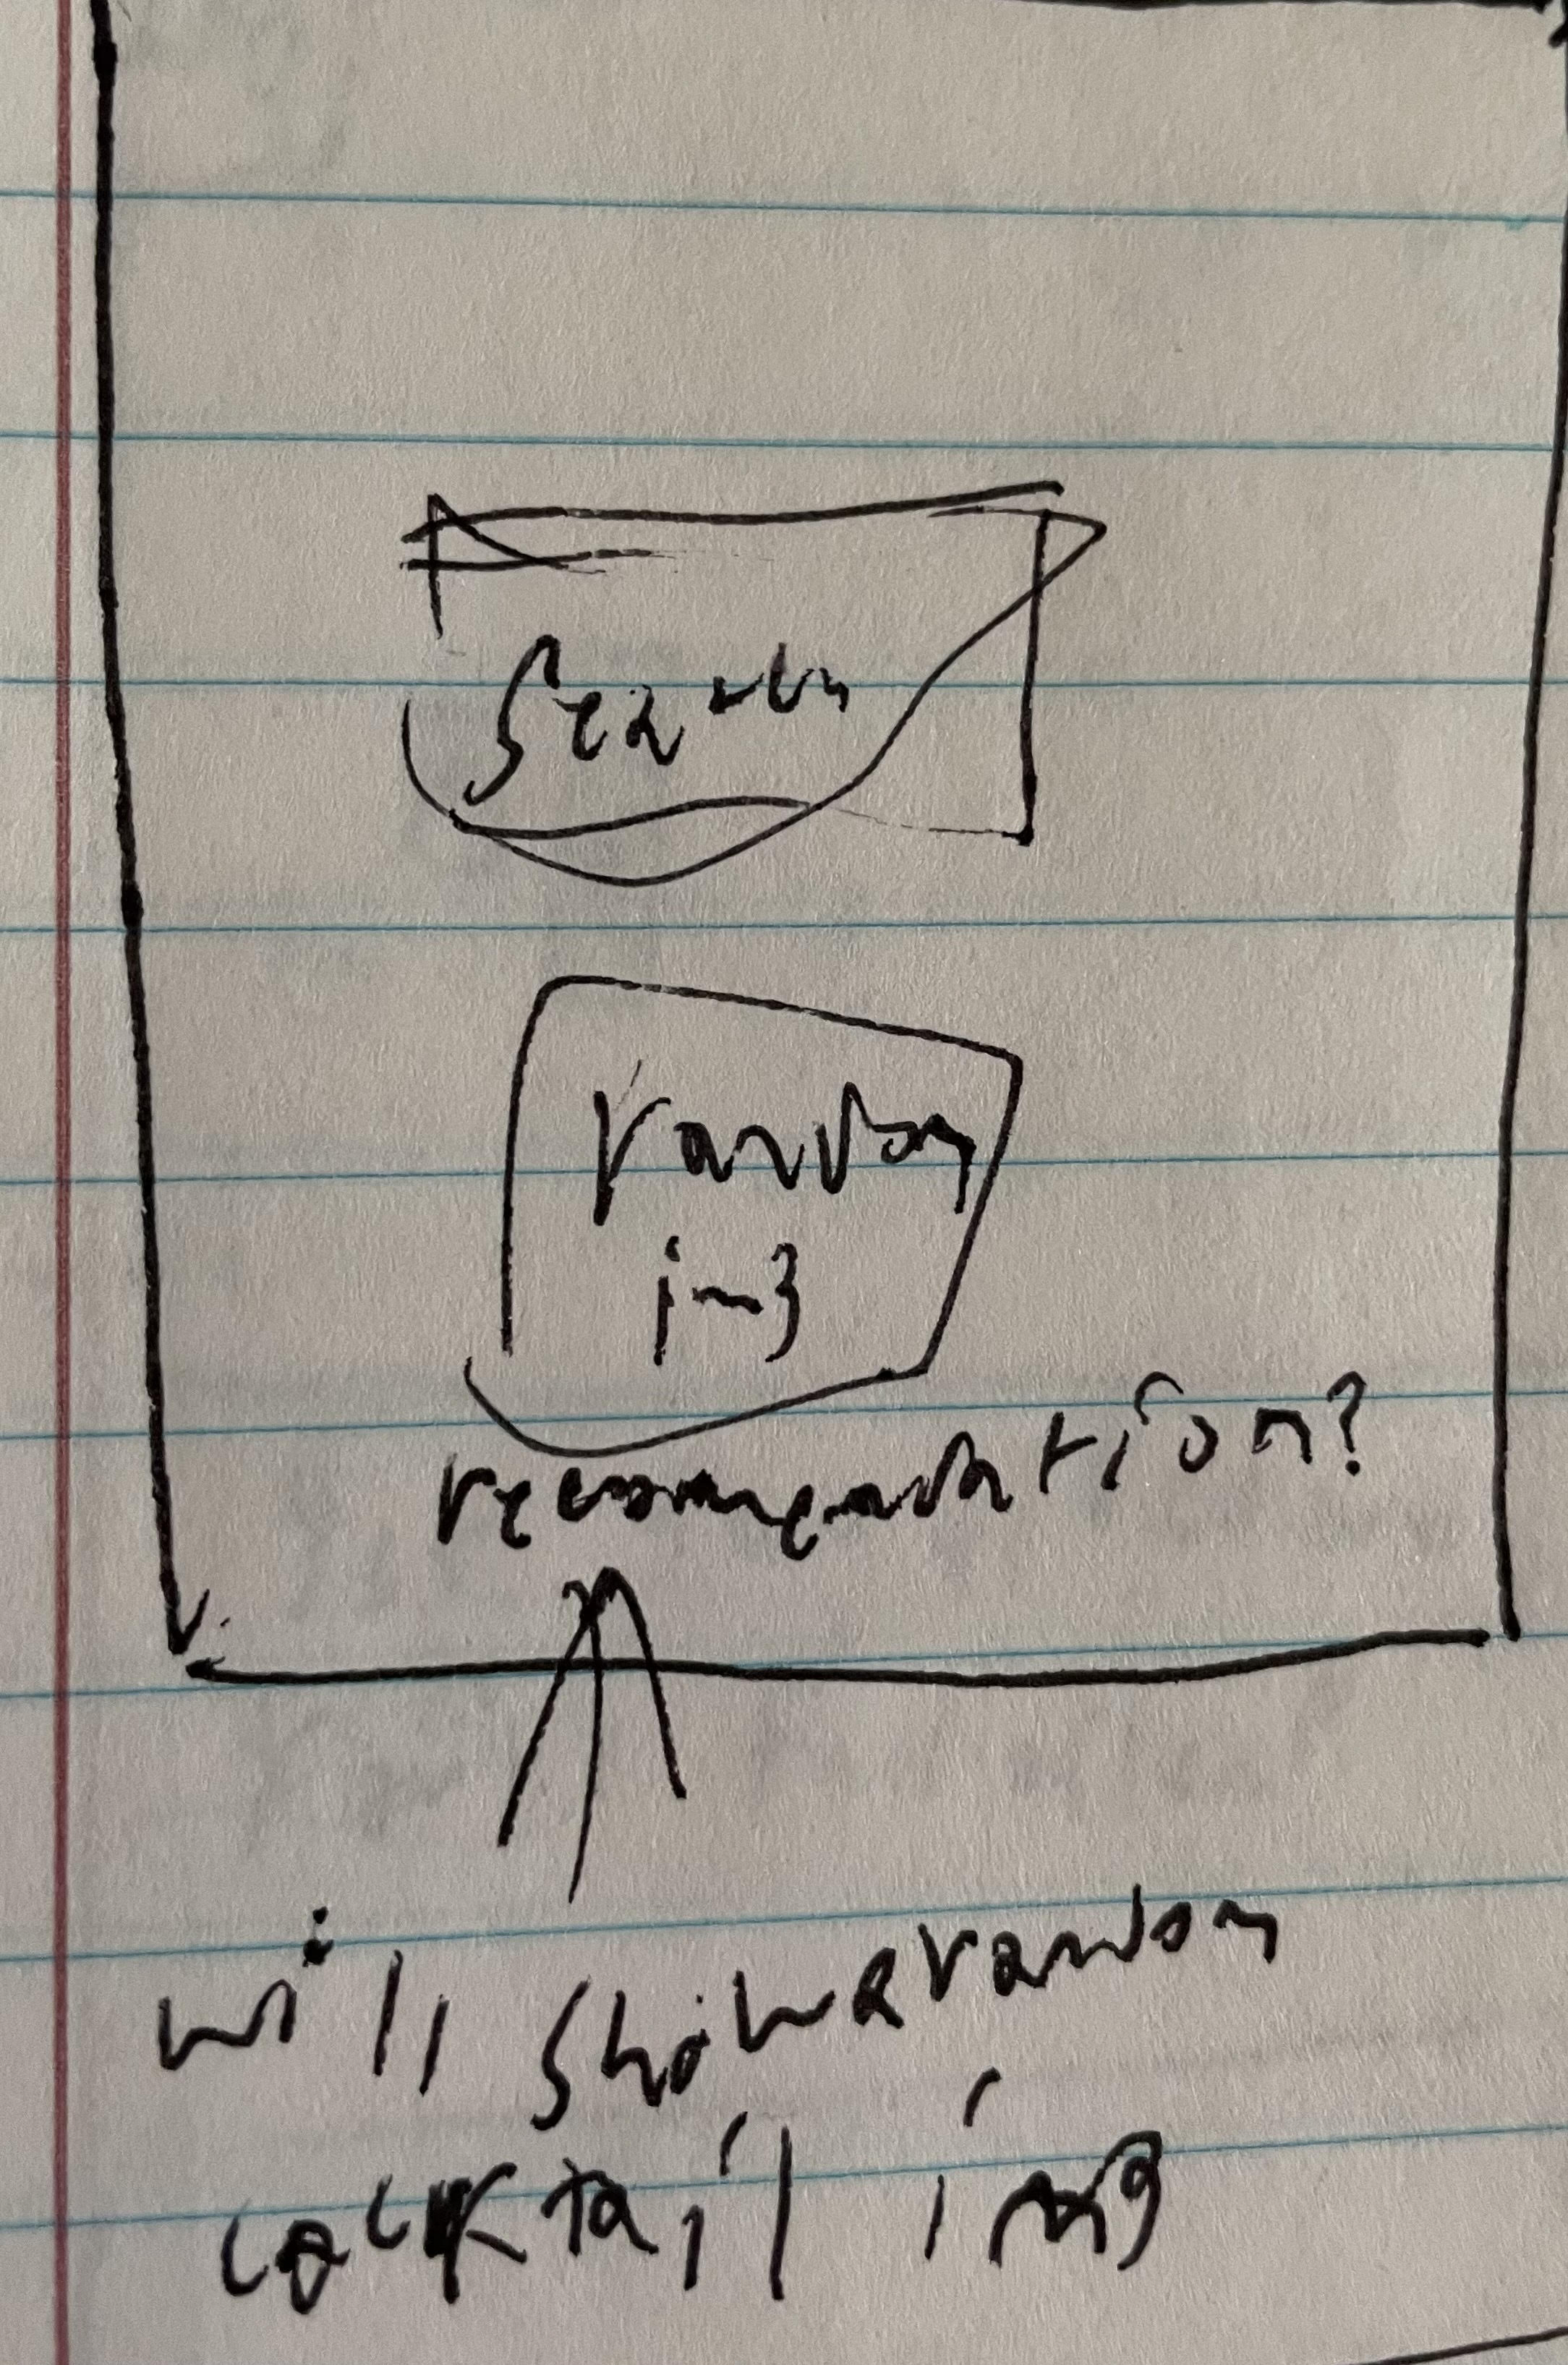 Search
random
img
recomendation?
will show a random
cocktail img